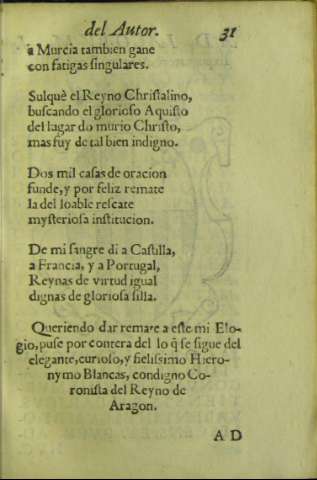 del Autor. 31
a Murcia tambien gane
con fatigas ſingulares.
Sulquè el Reyno Chriſtalino,
buſcando el glorioſo Aquiſto
del lugar do murio Chriſto,
mas fuy de tal bien indigno.
Dos mil caſas de oracion
funde, y por feliz remate
la del loable reſcate
myſterioſa inſtitucion.
De mi ſangre di a Caſtilla,
a Francia, y a Portugal,
Reynas de virtud igual
dignas de glorioſa ſilla.
Queriendo dar remate a eſte mi Elo-
gio, puſe por contera del lo q̃ ſe ſigue del
elegante, curioſo, y fieliſsimo Hiero-
nymo Blancas, condigno Co-
roniſta del Reyno de
Aragon.
A D